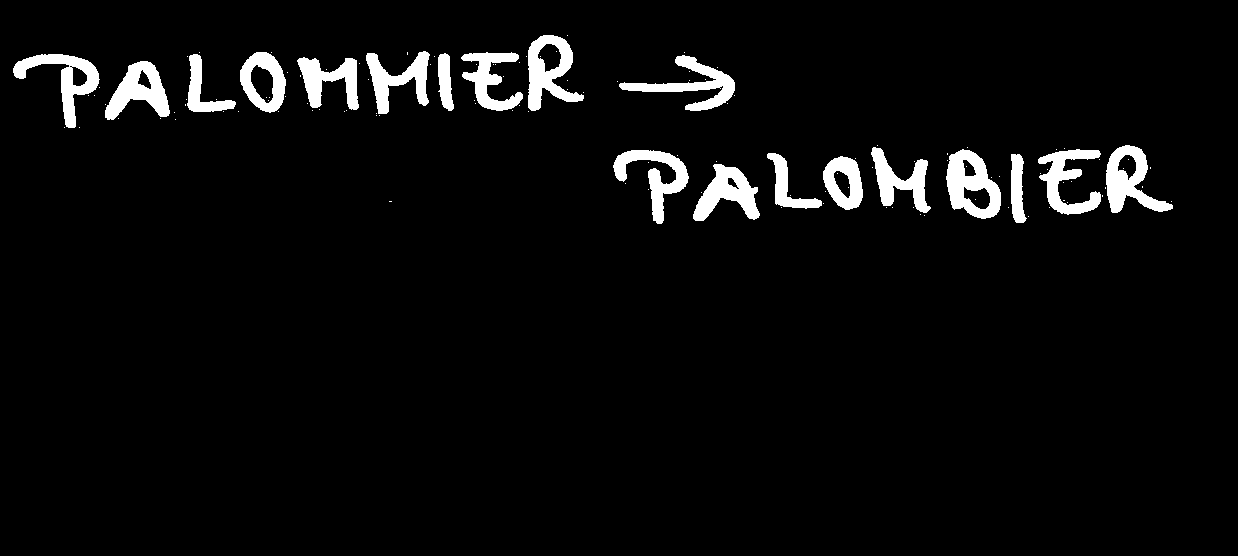 PALOMMIER →
PALOMBIER